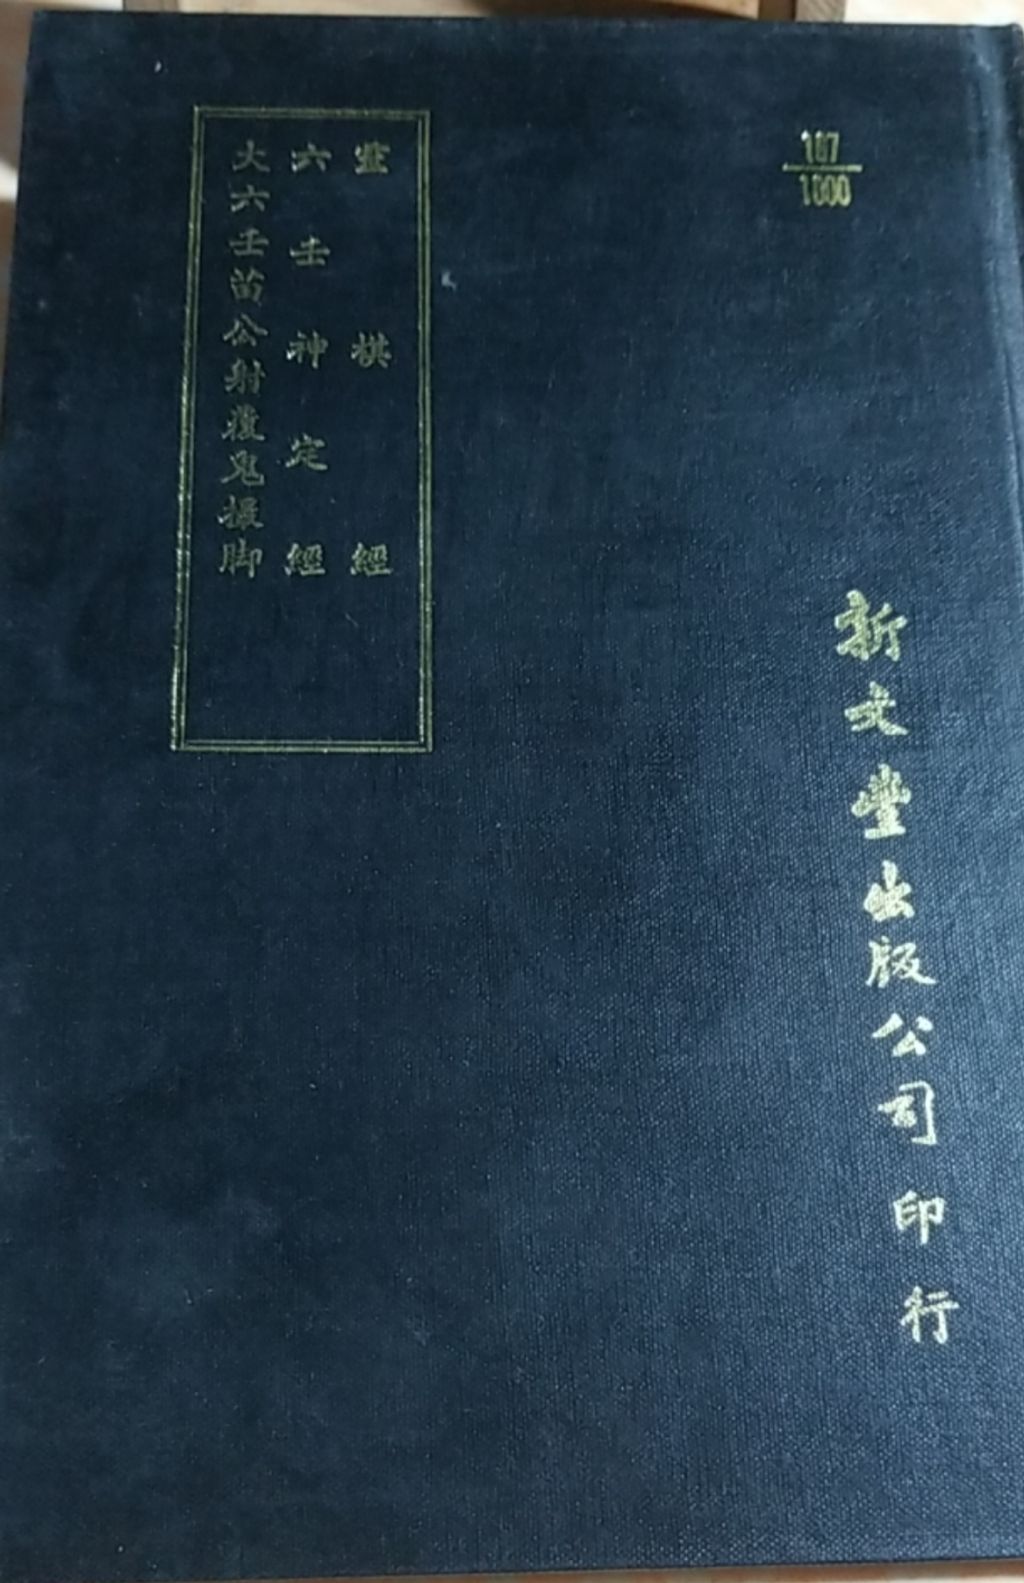 187
1000
靈棋經
六壬神定經
大六壬苗公射覆鬼撮脚
新文豐出版公司 印行